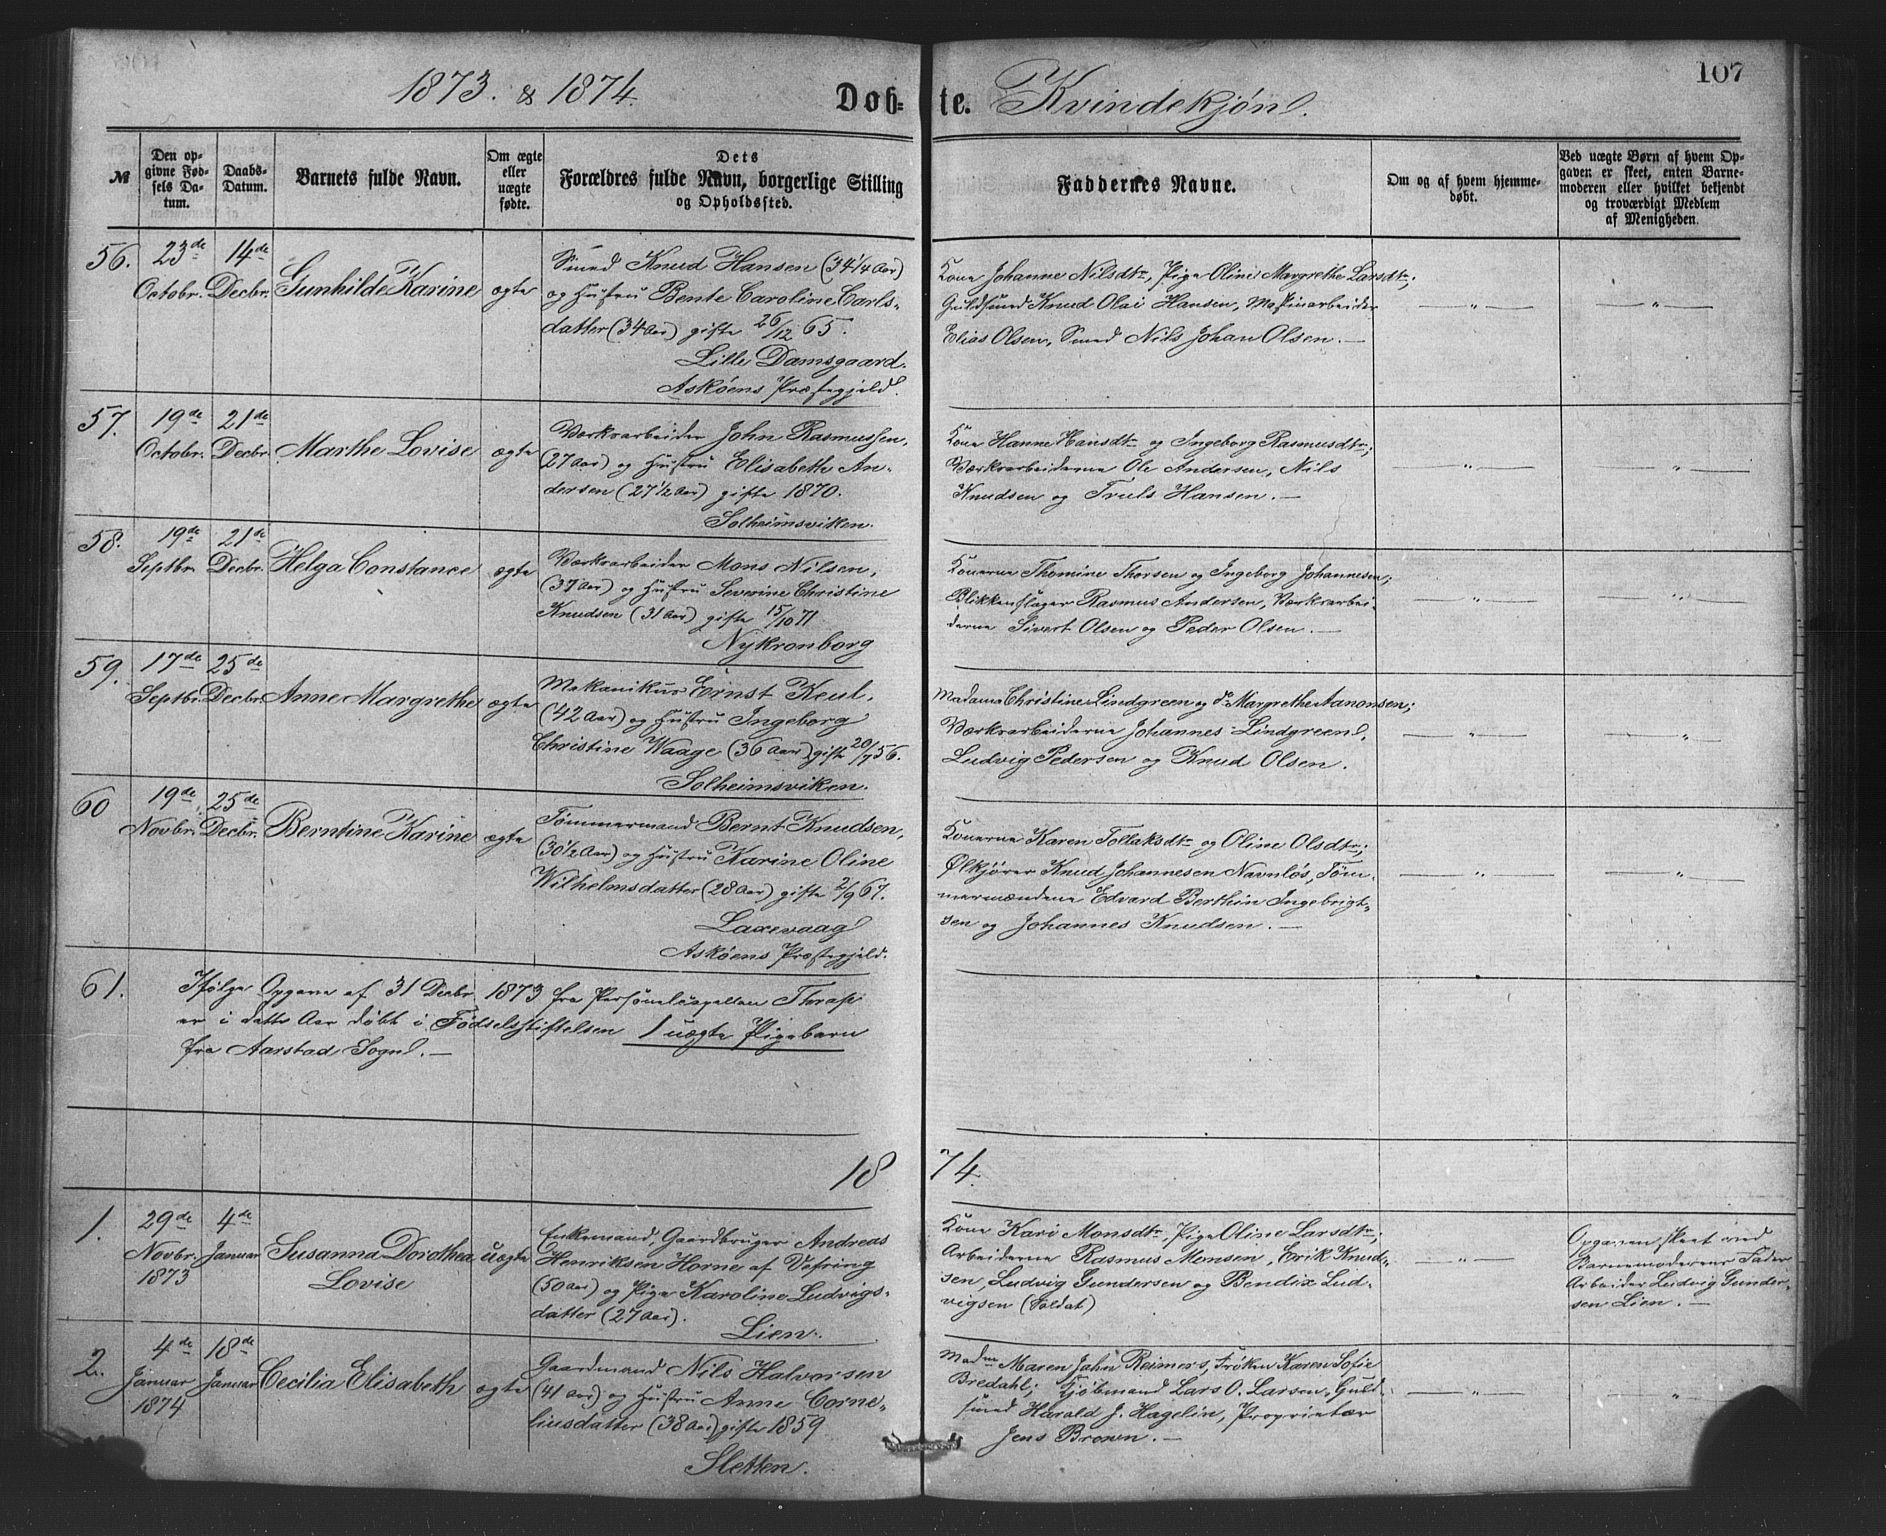 107
1873. & 1874.
Døb=
te. Kvindekjøn.
№
Den op-
givne Fød-
sels Da-
tum.
Daabs-
Datum.
Barnets fulde Navn.
Om ægte
eller
uægte
fødte.
Dets
Forældres fulde Navn, borgerlige Stilling
og Opholdssted.
Faddernes Navne.
Om og af hvem hjemme-
døbt.
Ved uægte Børn af hvem Op-
gaven er skeet, enten Barne-
moderen eller hvilket bekjendt
og troværdigt Medlem
af Menigheden.
56.
23de
Octobr.
14de
Decbr.
Gunhilde Karine
ægte
Smed Knud Hansen (34 1/4 Aar)
og Hustru Bente Caroline Carls-
datter (34 Aar) gifte 26/12 65.
Lille Damsgaard.
Askøens Præstegjeld.
Kone Johanne Nilsdtr, Pige Oline Margrethe Larsdtr;
Guldsmed Knud Olai Hansen, Maskinarbeider
Elias Olsen, Smed Nils Johan Olsen. —
— " —
— " —
57.
19de
Octobr.
21de
Decbr.
Marthe Lovise
ægte
Værksarbeider John Rasmussen,
(27 Aar) og Hustru Elisabeth An-
dersen (27 1/2 Aar) gifte 1870.
Solheimsviken.
Kone Hanne Hansdtr og Ingeborg Rasmusdtr;
Værksarbeiderne Ole Andersen, Nils
Knudsen og Truls Hansen. —
— " —
— " —
58.
19de
Septbr.
21de
Decbr.
Helga Constance
ægte
Værksarbeider Mons Nilsen,
(37 Aar) og Hustru Severine Christine
Knudsen (31 Aar) gifte 15/10 71
Nykronborg
Konerne Thomine Thorsen og Ingeborg Johannesen;
Blikkenslager Rasmus Andersen, Værksarbei-
derne Sivert Olsen og Peder Olsen. —
— " —
— " —
59.
17de
Septbr.
25de
Decbr.
Anne Margrethe
ægte
Mekanikus Ernst Keul,
(42 Aar) og Hustru Ingeborg
Christine Waage (36 Aar) gifte 20/7 56.
Solheimsviken.
Madame Christine Lindgreen og do Margrethe Aanonsen;
Værksarbeiderne Johannes Lindgreen,
Ludvig Pedersen og Knud Olsen.
— " —
"
60
19de
Novbr.
25de
Decbr.
Berntine Karine
ægte
Tømmermand Bernt Knudsen,
(30 1/2 Aar) og Hustru Karine Oline
Wilhelmsdatter (28 Aar) gifte 2/9 67.
Laxevaag
Askøens Præstegjeld.
Konerne Karen Tollaksdtr og Oline Olsdtr;
Ølkjører Knud Johannesen Navnløs, Tøm-
mermændene Edvard Berthin Ingebrigt-
sen og Johannes Knudsen. —
— " —
— " —
61.
Ifølge Opgave af 31 Decbr. 1873 fra Personelcapellan Thrap
er i dette Aar døbt i Fødselsstiftelsen 1 uægte Pigebarn
fra Aarstad Sogn. —
18
74.
1.
29de
Novbr.
1873
4de
Januar
Susanna Dorothea
Lovise
uægte
Enkemand, Gaardbruger Andreas
Henriksen Horne af Vefring
(50 Aar) og Pige Karoline Ludvigs-
datter (27 Aar).
Lien.
Kone Kari Monsdtr, Pige Oline Larsdtr;
Arbeiderne Rasmus Monsen, Erik Knud-
sen, Ludvig Gundersen og Bendix Lud-
vigsen (Soldat)
— " —
Opgaven skeet ved
Barnemoderens Fader
Arbeider Ludvig Gunder-
sen Lien. —
2.
4de
Januar
1874
18de
Januar
Cecilia Elisabeth
ægte
Gaardmand Nils Halvorsen
(41 Aar) og Hustru Anne Corne-
liusdatter (38 Aar) gifte 1859
Sletten.
Madme Maren Jahn Reimers, Frøken Karen Sofie
Bredahl; Kjøbmand Lars O. Larsen, Guld-
smed Harald J. Hagelin, Proprietær
Jens Brown. —
— " —
"